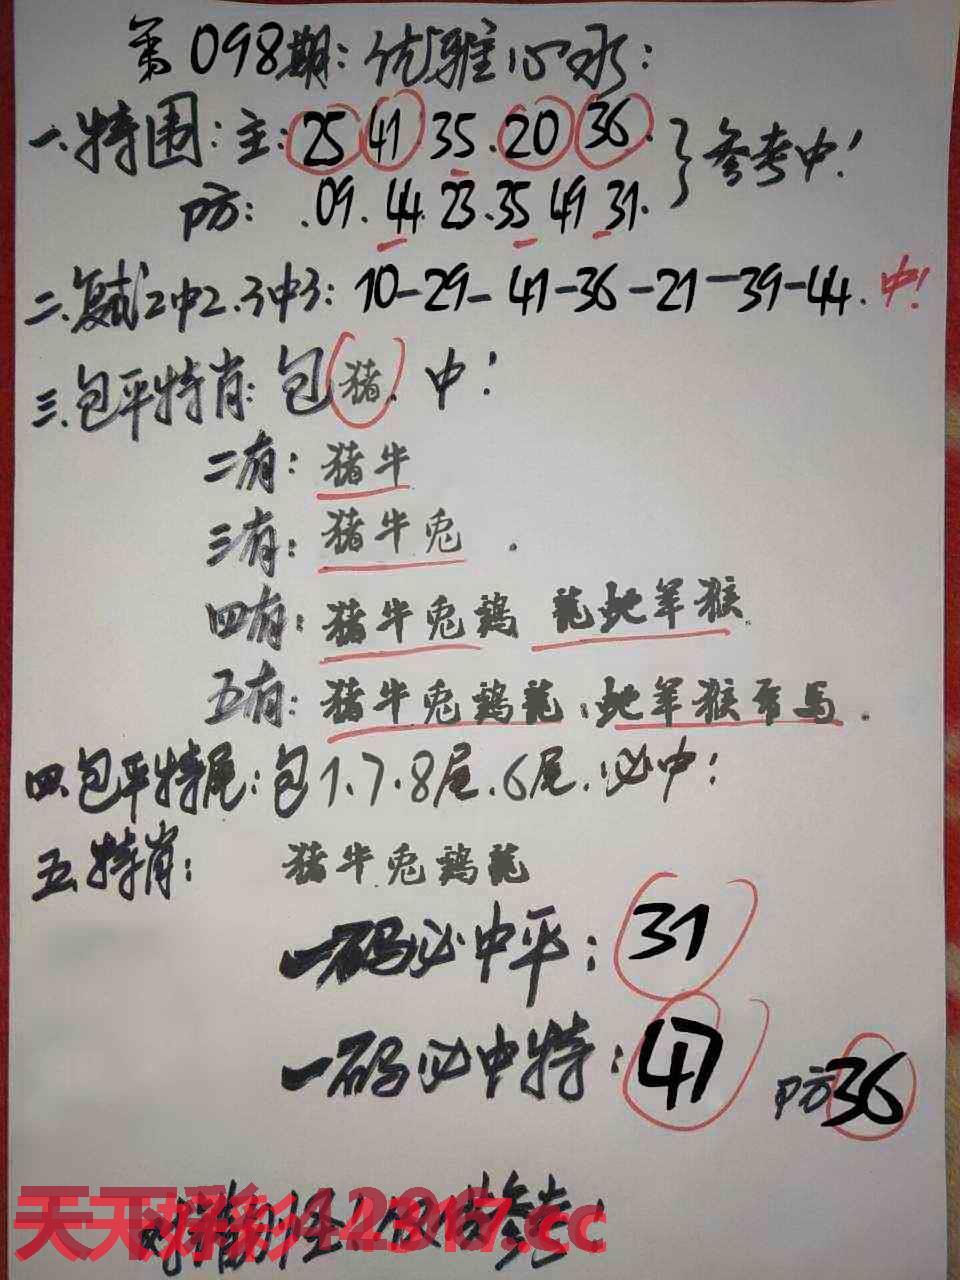 第098期:优雅心水:
一.特围:主:25 41 35.20 36.
防:.09.44.23.35 49 31.
}参考中!
二.复试2中2.3中3:10-29-41-36-21-39-44.中!
三.包平特肖:包猪.中!
二有:猪牛
三有:猪牛兔.
四有:猪牛兔鷄 龍蛇羊猴.
五有:猪牛兔鷄龍.蛇羊猴 马.
四.包平特尾:包1.7.8尾.6尾.必中!
五.特肖:猪牛.兔鷄龍
一码必中平:31
一码必中特:47 防36
天天 .cc